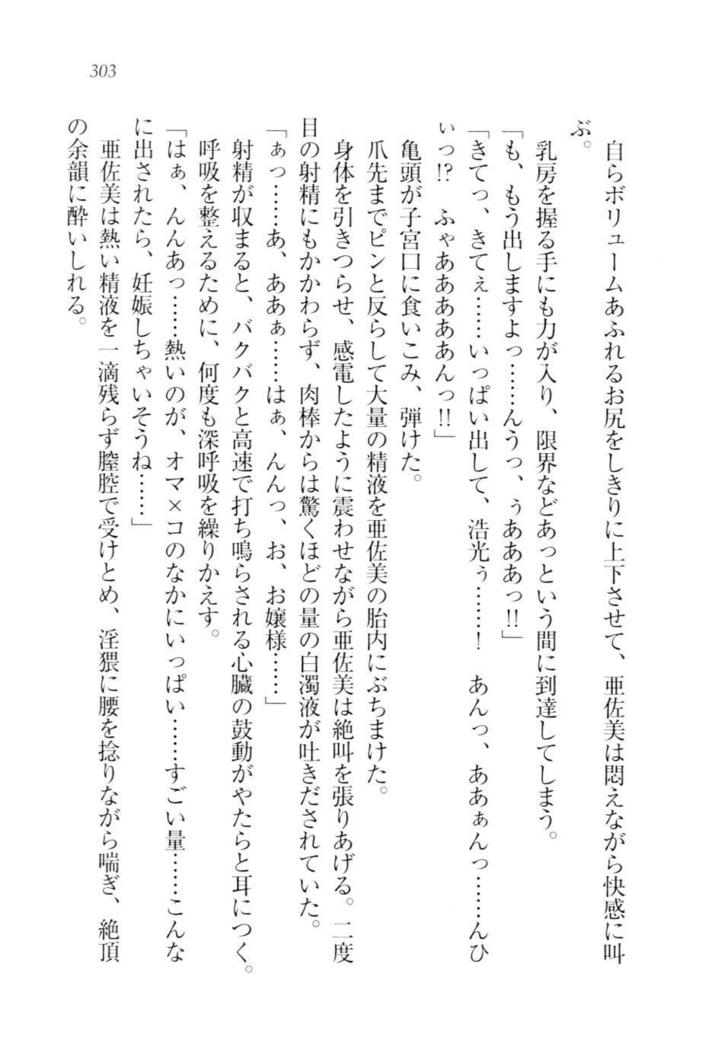 303
自らボリュームあふれるお尻をしきりに上下させて、亜佐美は悶えながら快感に叫
ぶ。
乳房を握る手にも力が入り、限界などあっという間に到達してしまう。
「も、もう出しますよっ……んうっ、ぅあああっ!!」
「きてっ、きてぇ……いっぱい出して、浩光ぅ……！　あんっ、ああぁんっ……んひ
ぃっ!?　ふゃああああぁんっ!!」
亀頭が子宮口に食いこみ、弾けた。
爪先までピンと反らして大量の精液を亜佐美の胎内にぶちまけた。
身体を引きつらせ、感電したように震わせながら亜佐美は絶叫を張りあげる。二度
目の射精にもかかわらず、肉棒からは驚くほどの量の白濁液が吐きだされていた。
「ぁっ……あ、ああぁ……はぁ、んんっ、お、お嬢様……」
射精が収まると、バクバクと高速で打ち鳴らされる心臓の鼓動がやたらと耳につく。
呼吸を整えるために、何度も深呼吸を繰りかえす。
「はぁ、んんあっ……熱いのが、オマ×コのなかにいっぱい……すごい量……こんな
に出されたら、妊娠しちゃいそうね……」
亜佐美は熱い精液を一滴残らず膣腔で受けとめ、淫猥に腰を捻りながら喘ぎ、絶頂
の余韻に酔いしれる。